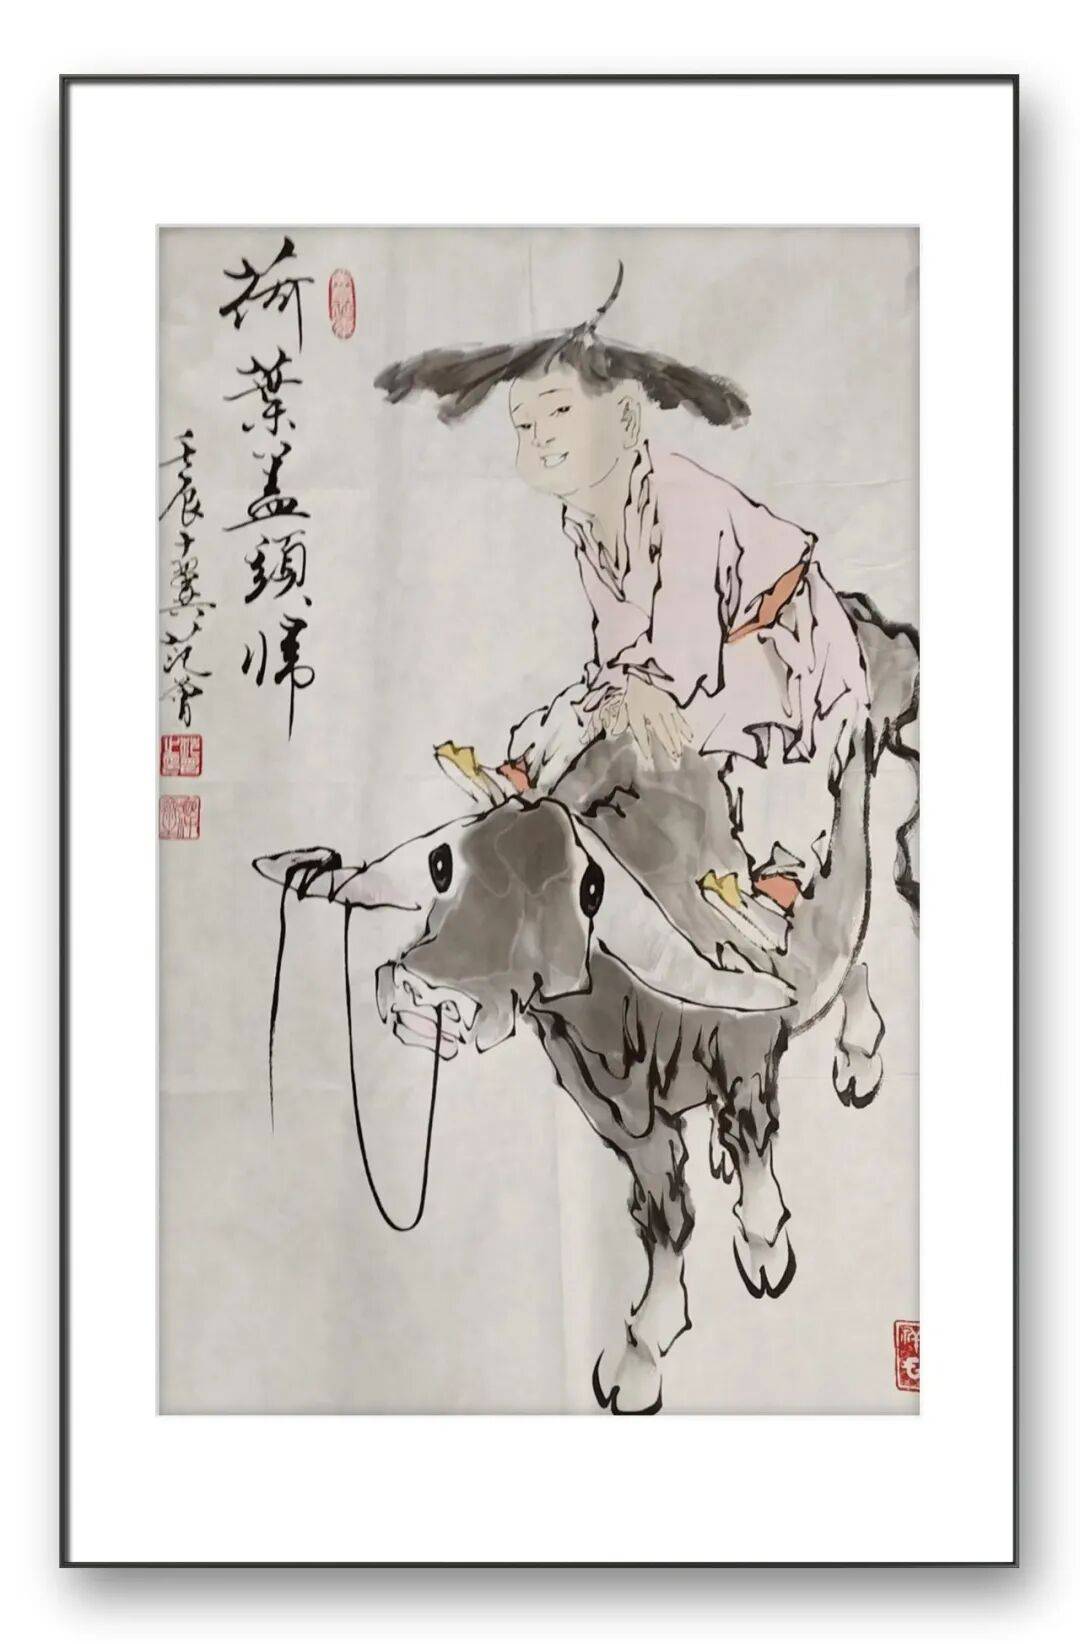 荷葉蓋頭歸
壬辰十翼范曾